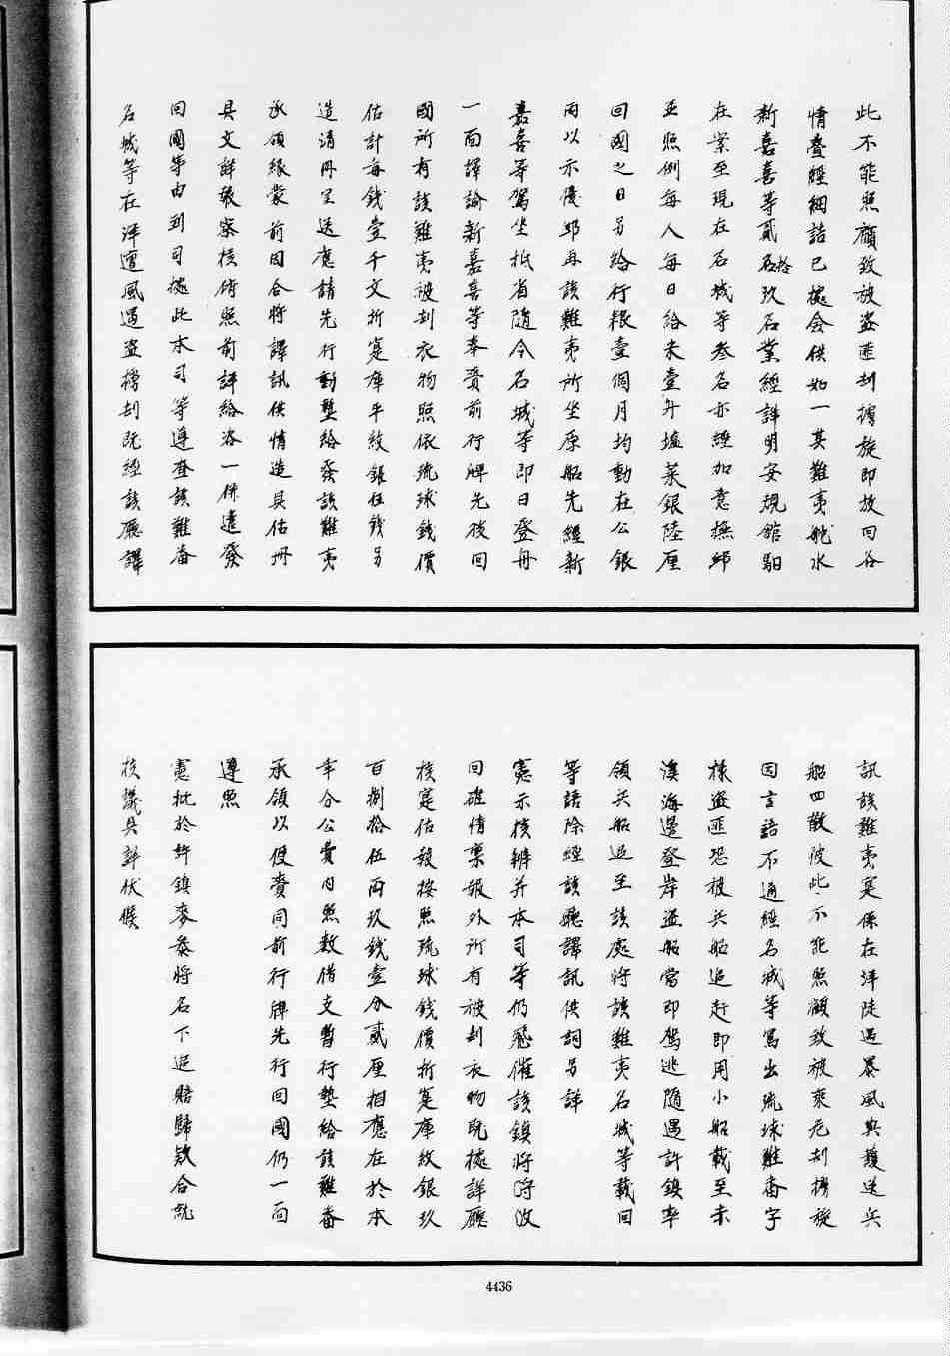 此不能照顧致被盜匪刦擄旋即放回各
情疊經細詰已據僉供如一其難夷舵水
新嘉喜等貳拾名玖名業經詳明安頓館驛
在案至現在名城等叁名亦經加意撫卹
並照例每人每日給米壹升塩菜銀陸厘
回國之日另給行粮壹個月均動在公銀
兩以示優卹再該難夷所坐原船先經新
嘉喜等駕坐抵省隨令名城等即日登舟
一面譯諭新嘉喜等奉賫前行牌先後回
國所有該難夷被刦衣物照依琉球錢價
估計每錢壹千文折寔庫平紋銀伍錢另
造清冊呈送應請先行動墊給發該難夷
承領緣蒙前因合將譯訊供情造具估冊
具文詳報察核俯照前詳給咨一併遣發
回國等由到司據此本司等遵查該難番
名城等在洋遭風遇盜擄刦既經該廳譯
訊該難夷寔係在洋陡遇暴風與護送兵
船四散彼此不能照顧致被乘危刦擄旋
因言語不通經名城等寫出琉球難番字
樣盜匪恐被兵船追赶即用小船載至赤
溪海邊登岸盜船當即駕逃隨遇許鎮率
領兵船追至該處將該難夷名城等載回
等語除經該廳譯訊供詞另詳
憲示核辦并本司等仍飛催該鎮將將收
回確情稟報外所有被刦衣物既據詳廳
核寔估報按照琉球錢價折寔庫紋銀玖
百捌拾伍兩玖錢壹分貳厘相應在於本
年分公費內照數借支暫行墊給該難番
承領以便賫同前行牌先行回國仍一面
遵照
憲批於許鎮麥叅將名下追賠歸欵合就
核議具詳伏候
4436